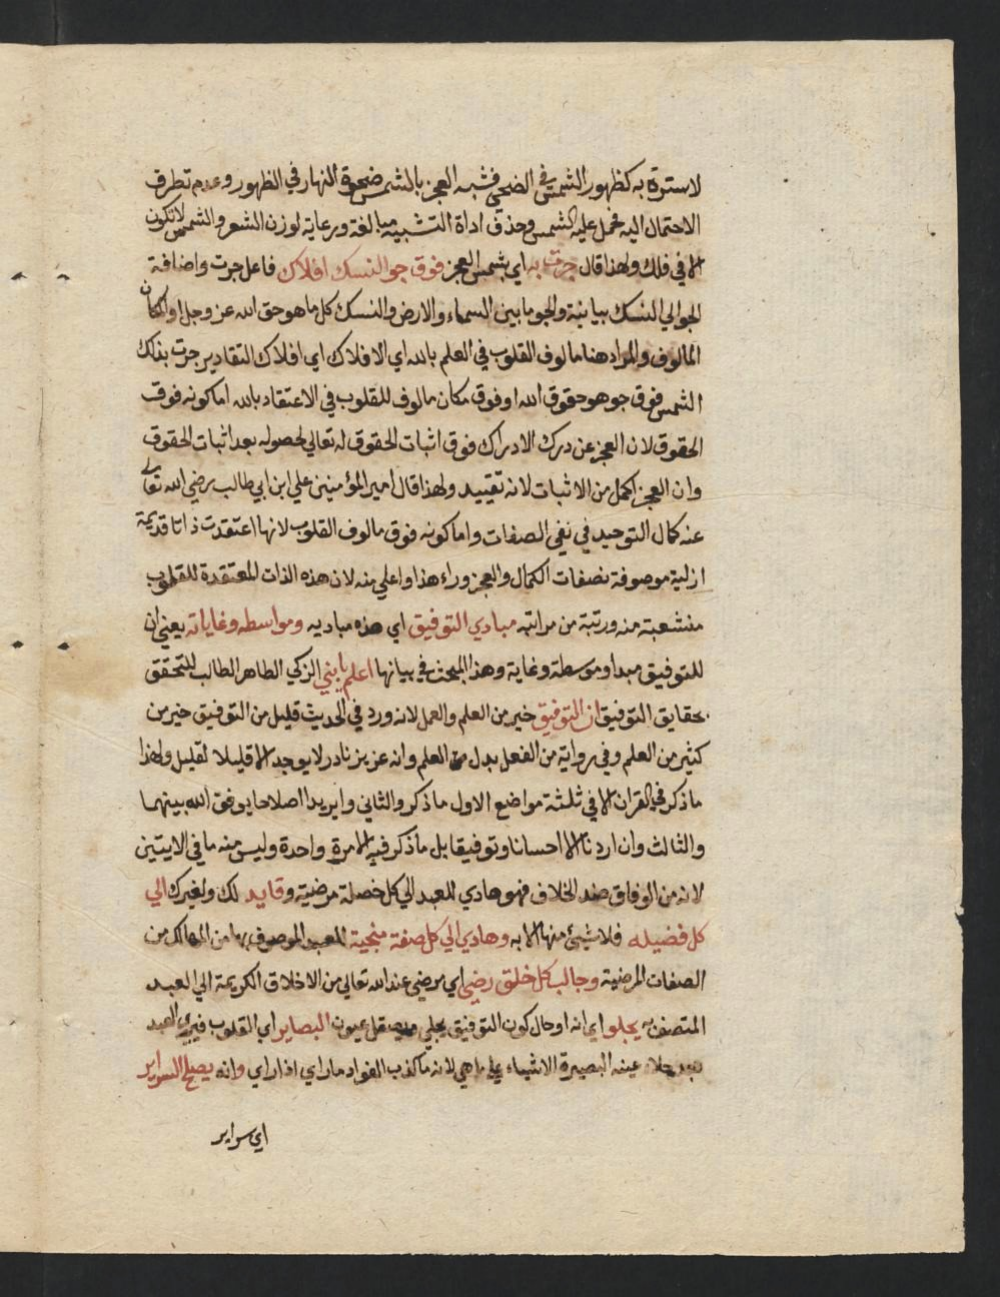 لاسترة به كظهور الشمس في الضحى فشبه العجز بالشمس ضحوة النهار في الظهور وعدم تطرف
الاحتمال اليه فحمل عليه الشمس وحذف اداة التشبيه مبالغة ورعاية لوزن الشعر والشمس لا تكون
الا في فلك ولهذا قال جرت به اي بشمس العجز فوق جو النسك افلاك فاعل جرت واضافة
الجو الي النسك بيانية والجو ما بين السماء والارض والنسك كل ما هو حق الله عز وجل او المكان
المالوف والمراد هنا مالوف القلوب في العلم بالله اي الافلاك اي افلاك التقادير جرت بذلك
الشمس فوق جو هو حقوق الله او فوق مكان مالوف للقلوب في الاعتقاد بالله اما كونه فوق
الحقوق لان العجز عن درك الادراك فوق اثبات الحقوق له تعالي لحصوله بعد اثبات الحقوق
وان العجز اكمل من الاثبات لانه تقييد ولهذا قال امير المؤمنين علي ابن ابي طالب رضي الله تعالي
عنه كمال التوحيد في نفي الصفات واما كونه فوق مالوف القلوب لانها اعتقدت ذاتا قديمة
ازلية موصوفة بصفات الكمال والعجز وراء هذا واعلي منه لان هذه الذات المعتقدة للقلوب
منشعبة منه ورتبة من مراتبه مبادي التوفيق اي هذه مباديه ومواسطه وغاياته يعني ان
للتوفيق مبدا وموسطة وغاية وهذا المبحث في بيانها اعلم يا بني الزكي الطاهر الطالب للتحقق
بحقايق التوفيق ان التوفيق خير من العلم والعمل لانه ورد في الحديث قليل من التوفيق خير من
كثير من العلم وفي رواية من الفعل بدل من العلم وانه عزيز نادر لا يوجد الا قليلا لقليل ولهذا
ما ذكر في القران الا في ثلثة مواضع الاول ما ذكر والثاني وان يريدا اصلاحا يوفق الله بينهما
والثالث وان اردنا الا احسانا وتوفيقا بل ما ذكر فيه الا مرة واحدة وليس منه ما في الايتين
لانه من الوفاق ضد الخلاف فهو هادي للعبد الي كل خصلة مرضية وقايد لك ولغيرك الي
كل فضيله فلا شيئ منها الا به وهادي الي كل صفة منجية للعبد الموصوف بها من المهالك من
الصفات المرضية وجالب كل خلق رضي اي مرضي عند الله تعالي من الاخلاق الكريمة الي العبد
المتصف به يجلو اي انه او حال كون التوفيق يجلي ويصقل عيون البصاير اي القلوب فيري العبد
بعد جلاء عينه البصيرة الاشياء علي ما هي لانه ما كذب الفواد ما راي اذا راي وانه يصلح السراير
اي سراير